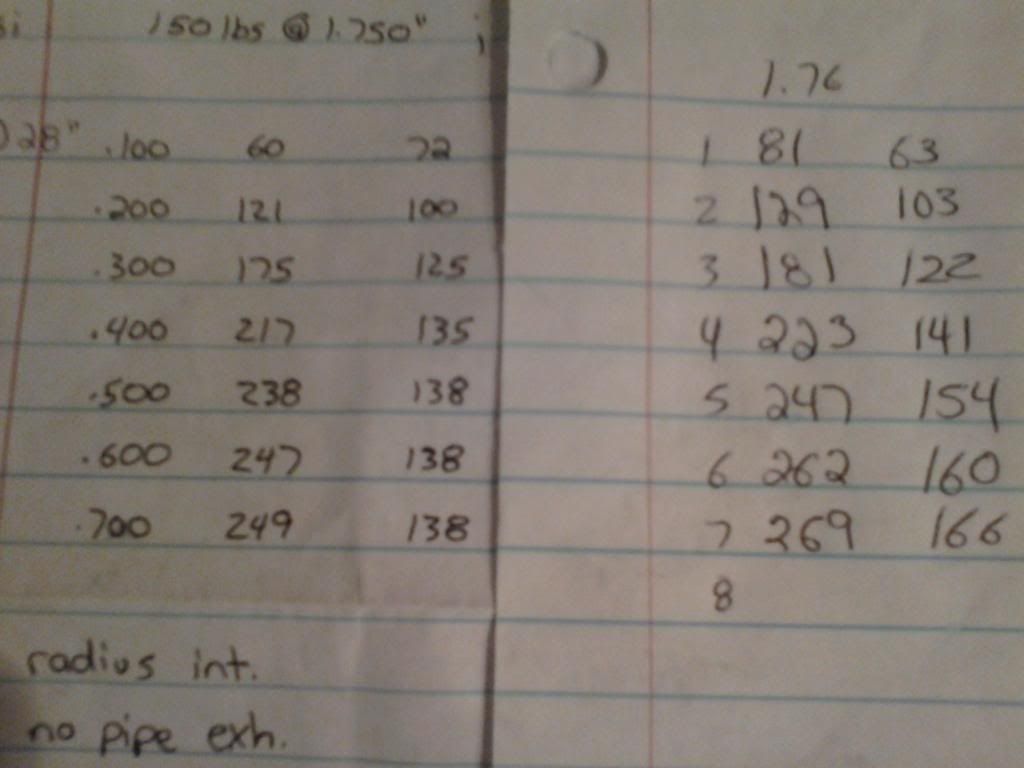 150 lbs @ 1.750" ;
28" .100 60 72
.200 121 100
.300 175 125
.400 217 135
.500 238 138
.600 247 138
.700 249 138
radius int.
no pipe exh.
1.76
1 81 63
2 129 103
3 181 122
4 223 141
5 247 154
6 262 160
7 269 166
8